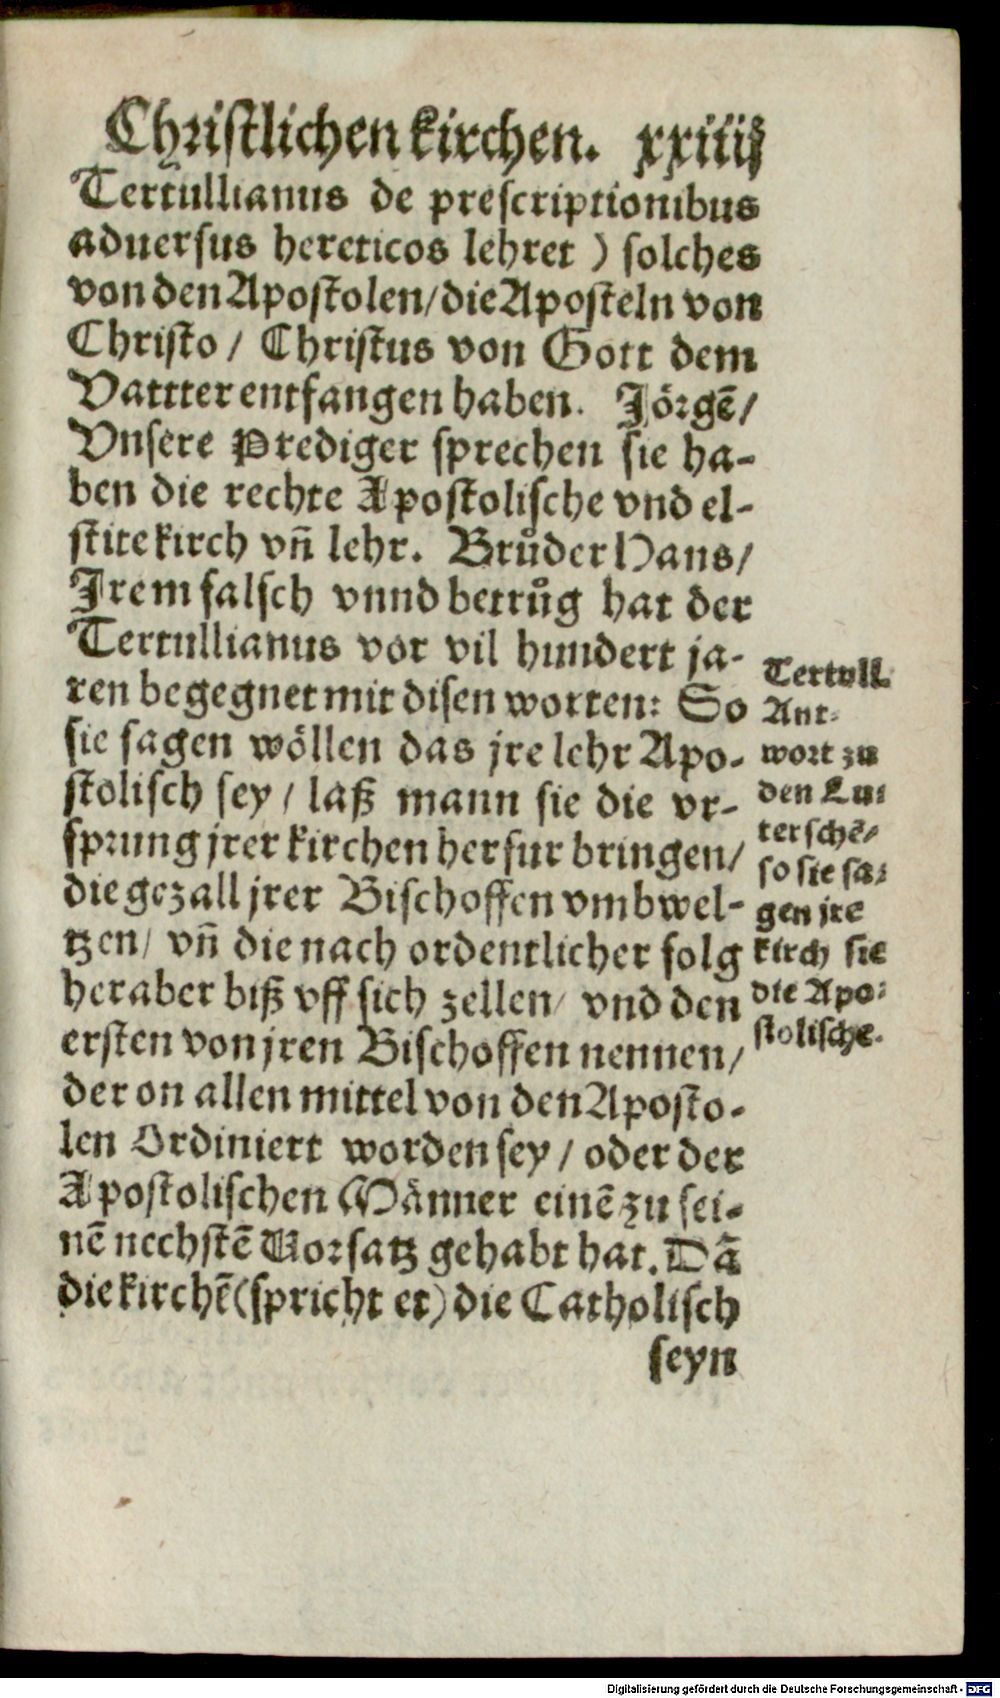 Christlichen kirchen. xxiiij
Tertullianus de prescriptionibus
aduersus hereticos lehret ) solches
von den Apostolen / die Aposteln von
Christo / Christus von Gott dem
Vattter entfangen haben. Jörgẽ /
Vnsere Prediger sprechen sie ha-
ben die rechte Apostolische vnd el-
stite kirch vñ lehr. Brůder Hans /
Jrem falsch vnnd betrůg hat der
Tertullianus vor vil hundert ja-
ren begegnet mit disen worten: So
sie sagen wöllen das jre lehr Apo-
stolisch sey / laß mann sie die vr-
sprung jrer kirchen herfur bringen /
die gezall jrer Bischoffen vmbwel-
tzen / vñ die nach ordentlicher folg
heraber biß vff sich zellen / vnd den
ersten von jren Bischoffen nennen /
der on allen mittel von den Aposto-
len Ordiniert worden sey / oder der
Apostolischen Männer einẽ zu sei-
nẽ nechstẽ Vorsatz gehabt hat. Dã
die kirchẽ (spricht er) die Catholisch
seyn
Tertull.
Ant-
wort zu
den Lu-
terschẽ /
so sie sa-
gen jre
kirch sie
die Apo-
stolische.
Digitalisierung gefördert durch die Deutsche Forschungsgemeinschaft - DFG